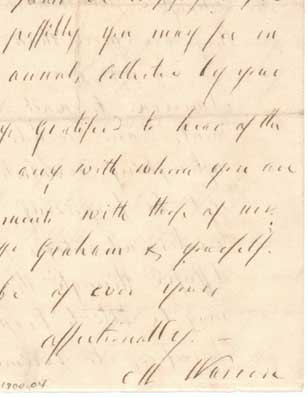 possibly you may be in
annals, collected by your
gratified to hear of the
any with whom you are
ments with those of mr.
Graham & yourself.
be as ever yours
affectionately. —
M Warren
1900.04